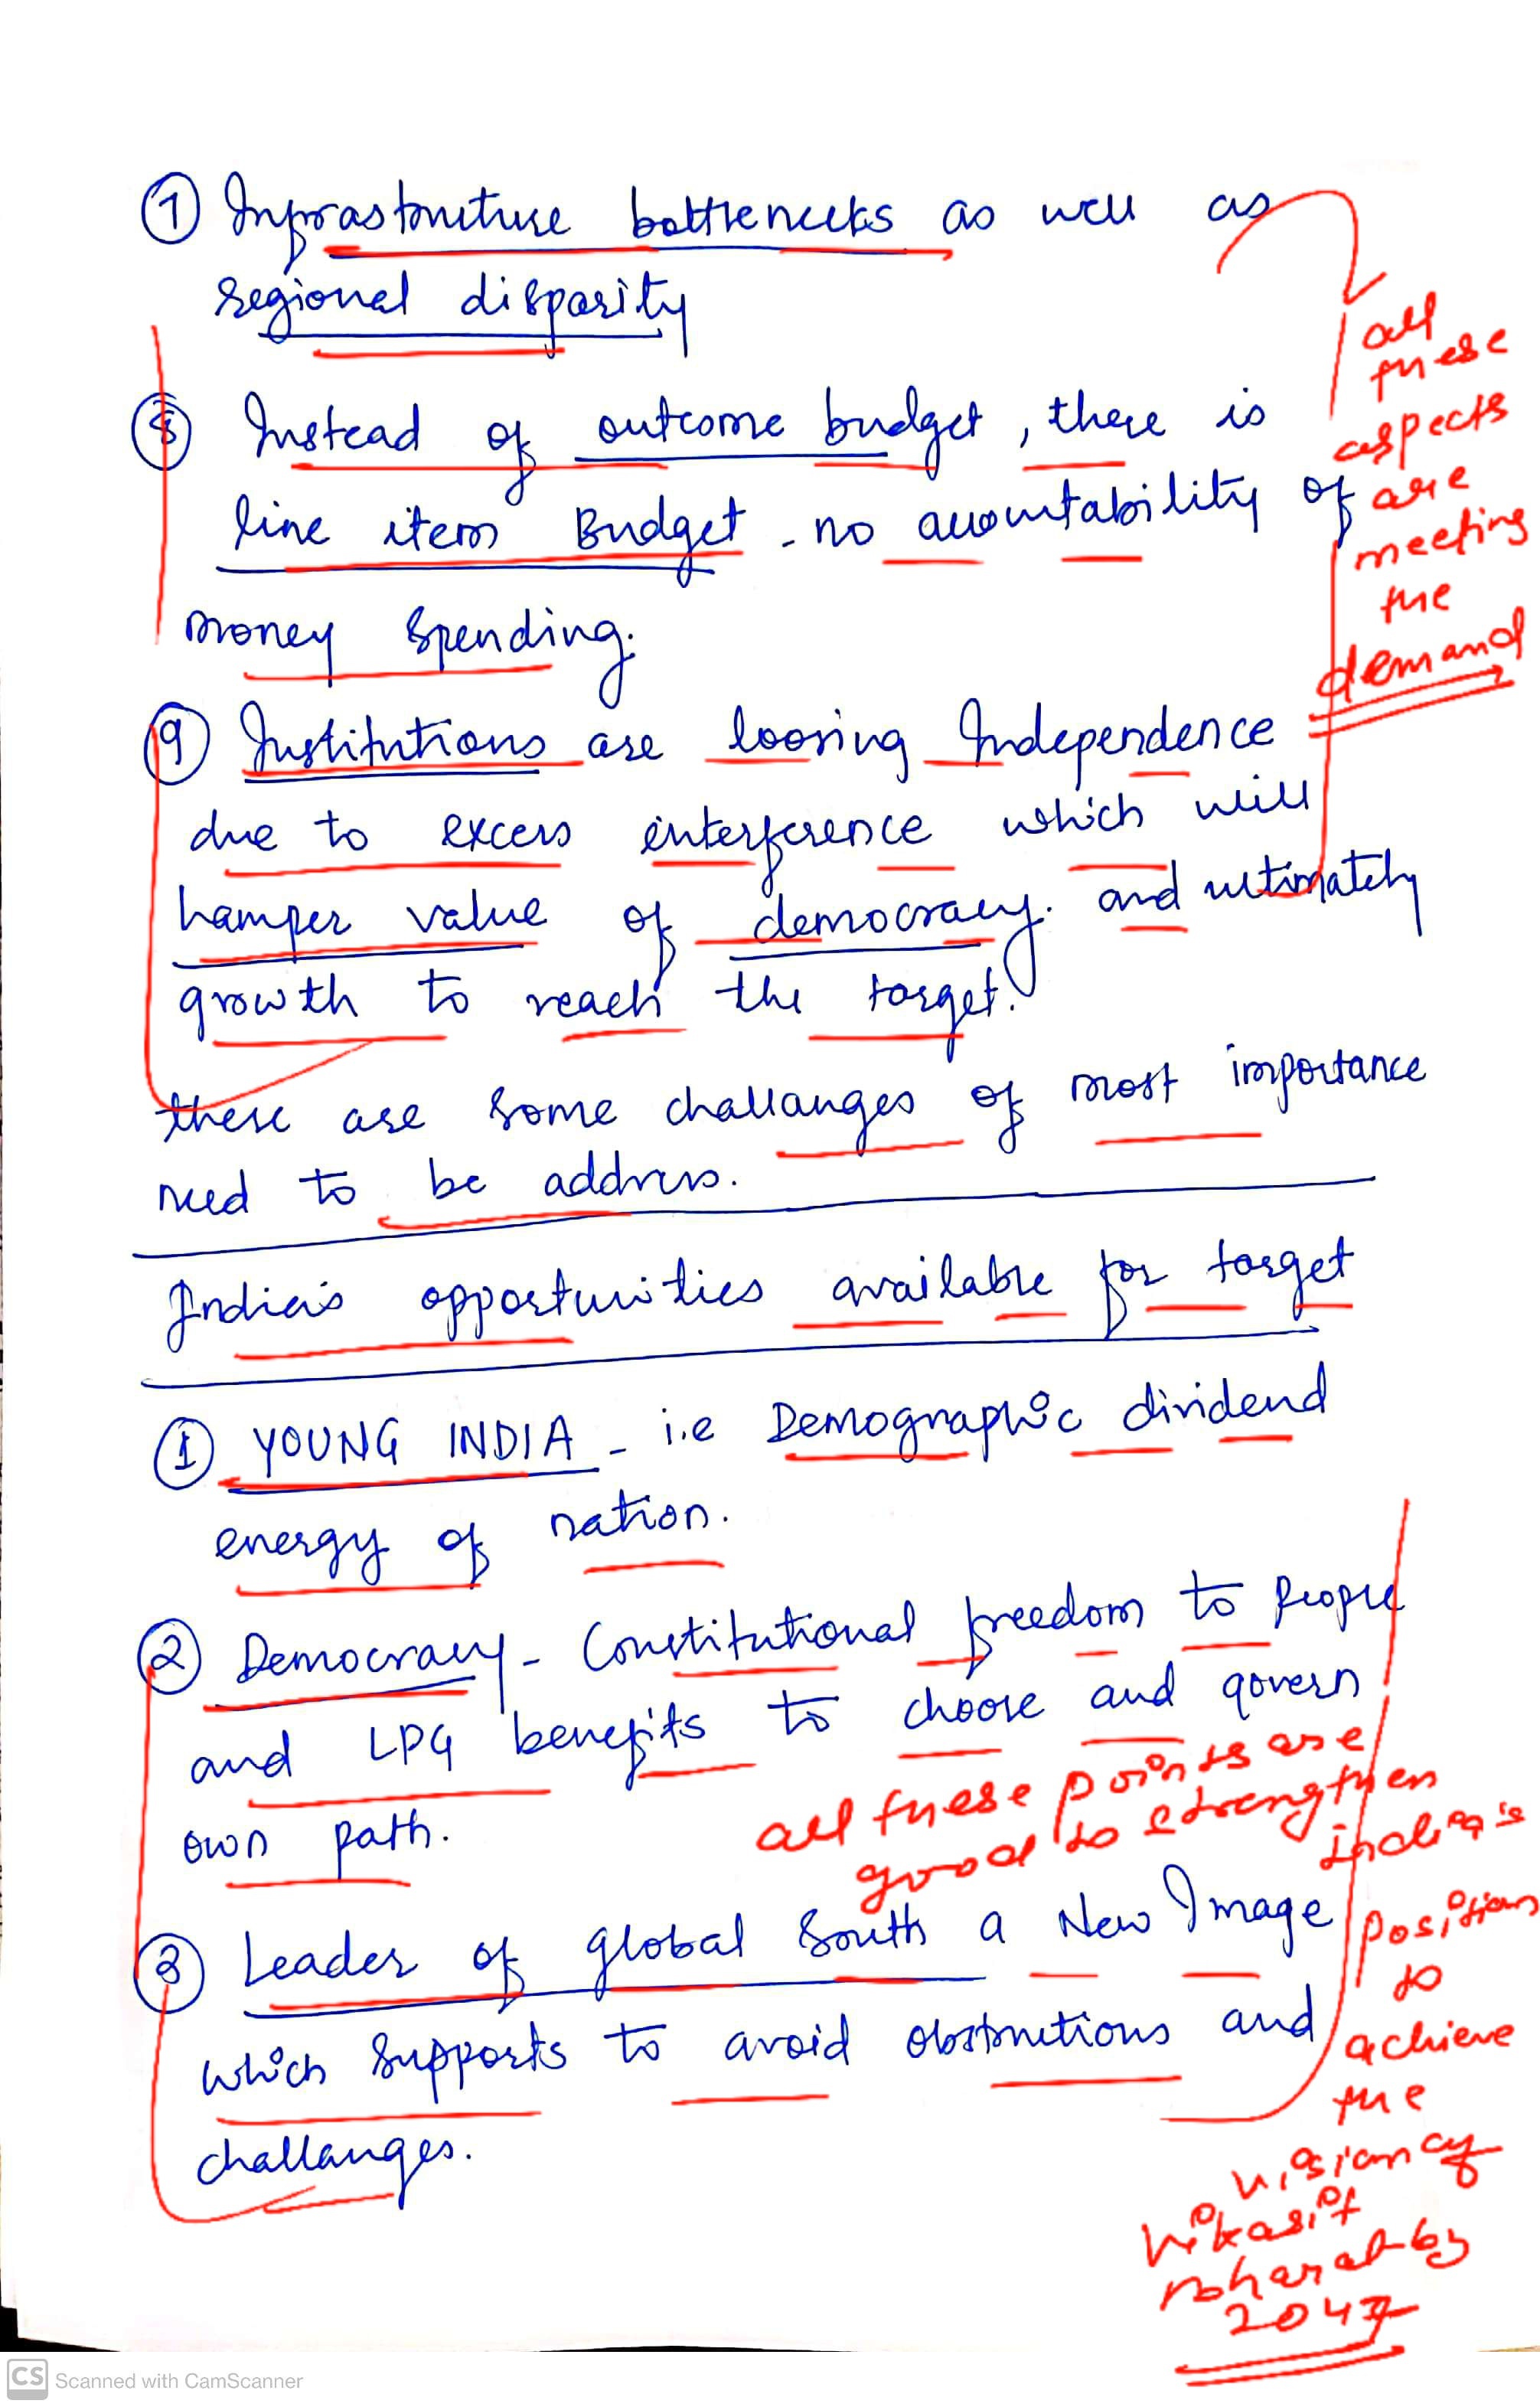 ⑦ Infrastructure bottlenecks as well as
regional disparity
⑧ Instead of outcome budget, there is
line item Budget - no accountability of
money spending.
⑨ Institutions are loosing Independence
due to excess interference which will
hamper value of democracy. and ultimately
growth to reach the target.
these are some challanges of most importance
need to be address.
all
these
aspects
are
meeting
the
demand
India's opportunities available for target
① YOUNG INDIA - i.e Demographic dividend
energy of nation.
② Democracy - Constitutional freedom to people
and LPG benefits to choose and govern
own path.
③ Leader of global South a New Image
which supports to avoid obstructions and
challanges.
all these points are
good to strengthen
india's
position
to
achieve
the
vision of
vikasit
bharat by
2047
CS Scanned with CamScanner